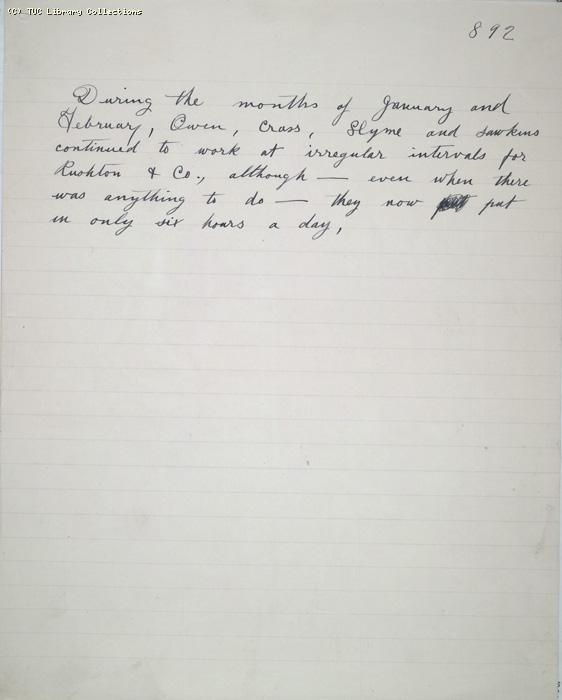 (C) TUC Library Collections
892
During the months of January and
February, Owen, Crass, Slyme and Sawkins
continued to work at irregular intervals for
Rushton & Co., although — even when there
was anything to do — they now put
in only six hours a day,